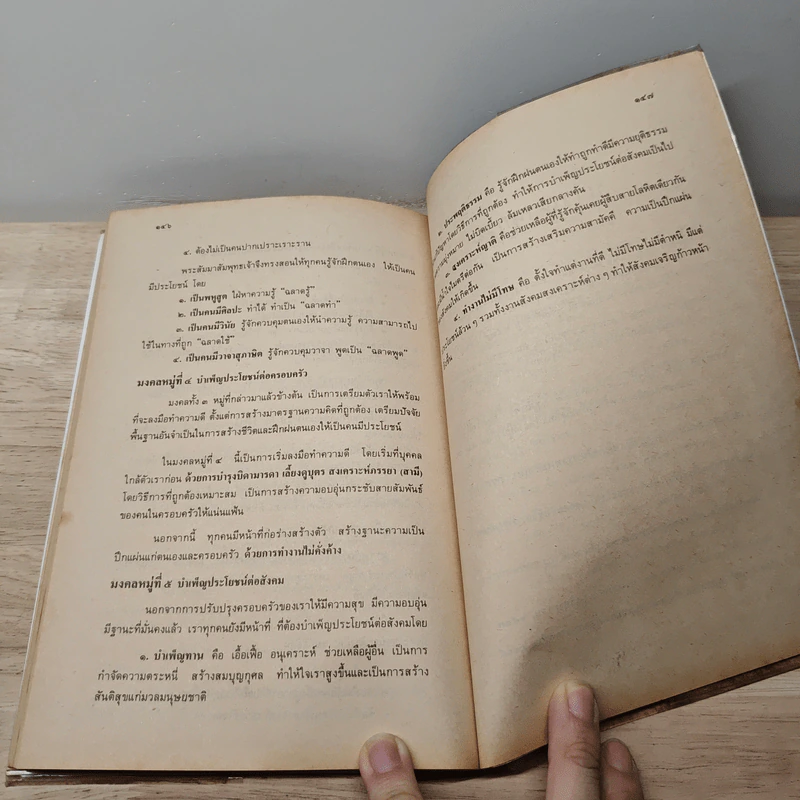 ๑๔๖
๔. ต้องไม่เป็นคนปากเปราะเราะราน
พระสัมมาสัมพุทธเจ้าจึงทรงสอนให้ทุกคนรู้จักฝึกตนเอง ให้เป็นคน
มีประโยชน์ โดย
๑. เป็นพหูสูต ใฝ่หาความรู้ "ฉลาดรู้"
๒. เป็นคนมีศิลปะ ทำได้ ทำเป็น "ฉลาดทำ"
๓. เป็นคนมีวินัย รู้จักควบคุมตนเองให้นำความรู้ ความสามารถไป
ใช้ในทางที่ถูก "ฉลาดใช้"
๔. เป็นคนมีวาจาสุภาษิต รู้จักควบคุมวาจา พูดเป็น "ฉลาดพูด"
มงคลหมู่ที่ ๔ บำเพ็ญประโยชน์ต่อครอบครัว
มงคลทั้ง ๓ หมู่ที่กล่าวมาแล้วข้างต้น เป็นการเตรียมตัวเราให้พร้อม
ที่จะลงมือทำความดี ตั้งแต่การสร้างมาตรฐานความคิดที่ถูกต้อง เตรียมปัจจัย
พื้นฐานอันจำเป็นในการสร้างชีวิตและฝึกฝนตนเองให้เป็นคนมีประโยชน์
ในมงคลหมู่ที่ ๔ นี้เป็นการเริ่มลงมือทำความดี โดยเริ่มที่บุคคล
ใกล้ตัวเราก่อน ด้วยการบำรุงบิดามารดา เลี้ยงดูบุตร สงเคราะห์ภรรยา (สามี)
โดยวิธีการที่ถูกต้องเหมาะสม เป็นการสร้างความอบอุ่นกระชับสายสัมพันธ์
ของคนในครอบครัวให้แน่นแฟ้น
นอกจากนี้ ทุกคนมีหน้าที่ก่อร่างสร้างตัว สร้างฐานะความเป็น
ปึกแผ่นแก่ตนเองและครอบครัว ด้วยการทำงานไม่คั่งค้าง
มงคลหมู่ที่ ๕ บำเพ็ญประโยชน์ต่อสังคม
นอกจากการปรับปรุงครอบครัวของเราให้มีความสุข มีความอบอุ่น
มีฐานะที่มั่นคงแล้ว เราทุกคนยังมีหน้าที่ ที่ต้องบำเพ็ญประโยชน์ต่อสังคมโดย
๑. บำเพ็ญทาน คือ เอื้อเฟื้อ อนุเคราะห์ ช่วยเหลือผู้อื่น เป็นการ
กำจัดความตระหนี่ สร้างสมบุญกุศล ทำให้ใจเราสูงขึ้นและเป็นการสร้าง
สันติสุขแก่มวลมนุษยชาติ
๑๔๗
๒. ประพฤติธรรม คือ รู้จักฝึกฝนตนเองให้ทำถูกทำดีมีความยุติธรรม
โดยวิธีการที่ถูกต้อง ทำให้การบำเพ็ญประโยชน์ต่อสังคมเป็นไป
ไม่บิดเบี้ยว ล้มเหลวเสียกลางคัน
๓. สงเคราะห์ญาติ คือช่วยเหลือผู้ที่รู้จักคุ้นเคยผู้สืบสายโลหิตเดียวกัน
ไมตรีต่อกัน เป็นการสร้างเสริมความสามัคคี ความเป็นปึกแผ่น
ให้เกิดขึ้น
๔. ทำงานไม่มีโทษ คือ ตั้งใจทำแต่งานที่ดี ไม่มีโทษไม่มีตำหนิ มีแต่
ล้วน ๆ รวมทั้งงานสังคมสงเคราะห์ต่าง ๆ ทำให้สังคมเจริญก้าวหน้า